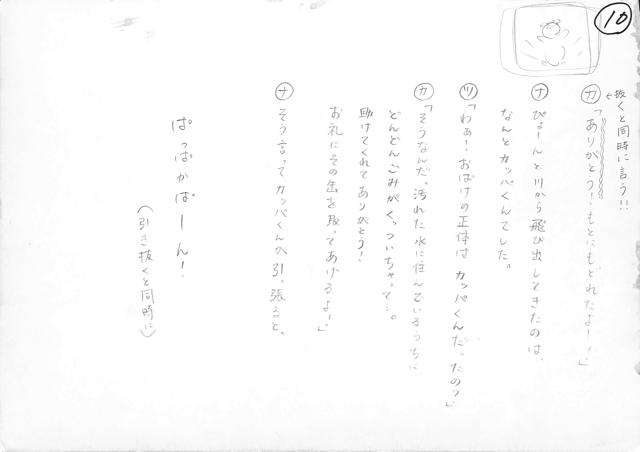 10
抜くと同時に言う!!
カ「ありがとう!もとにもどれたよー!」
ナ ぴょーんと川から飛び出してきたのは、
なんとカッパくんでした。
ツ「わぁ!おばけの正体は カッパくんだったの?」
カ「そうなんだ。汚れた水に住んでいるうちに
どんどんごみがくっついちゃって…。
助けてくれてありがとう!
お礼にその缶を取ってあげるよー!」
ナ そう言ってカッパくんが引っ張ると、
ぱっぱかぱーん!
(引き抜くと同時に)